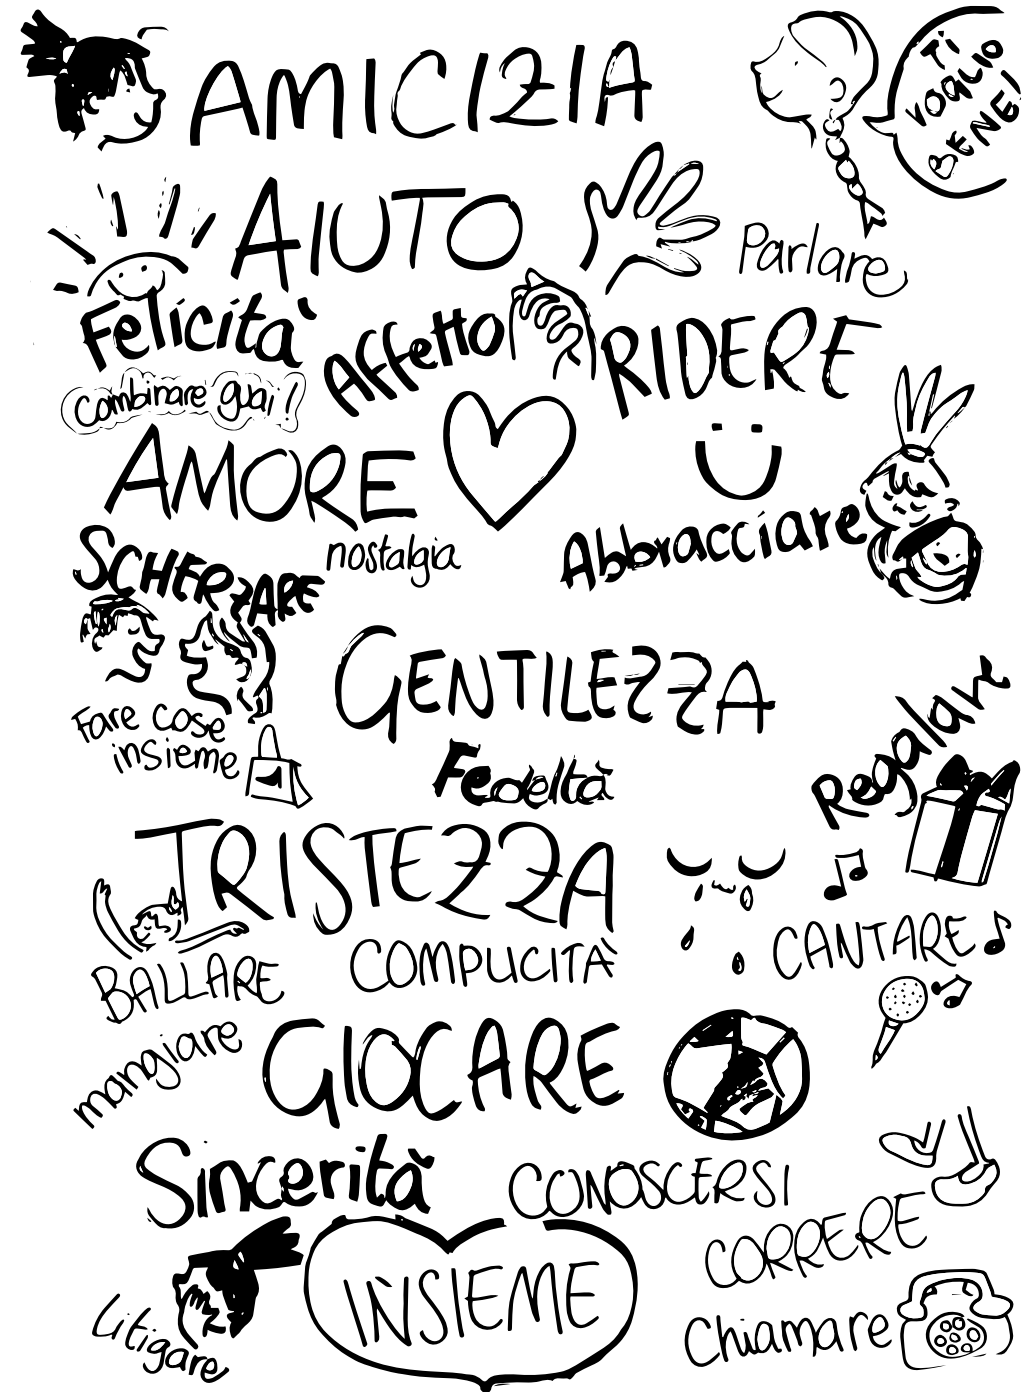 AMICIZIA
TI
VOGLIO
BENE!
AIUTO
Parlare
Felicità
Affetto
RIDERE
Combinare guai!
AMORE
nostalgia
Abbracciare
SCHERZARE
GENTILEZZA
Fare cose
insieme
Fedeltà
Regalare
TRISTEZZA
BALLARE
COMPLICITÀ
CANTARE
mangiare
GIOCARE
Sincerità
CONOSCERSI
CORRERE
INSIEME
Litigare
Chiamare